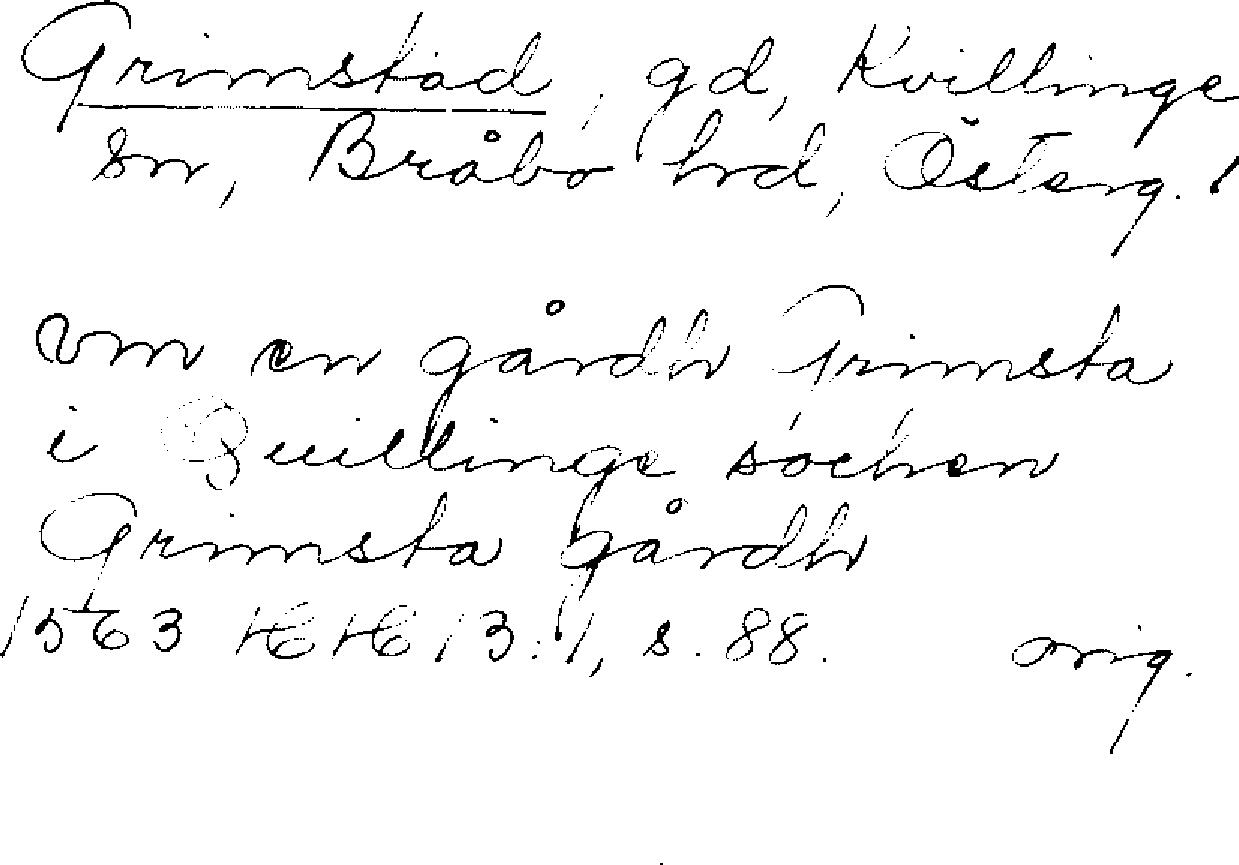 Grimstad, gd, Kvillinge
sn, Bråbo hrd, Österg. l
vm en gårdh Grimsta
i Quillinge sochen
Grimsta gårdh
1563 HH 13:1, s. 88. orig.